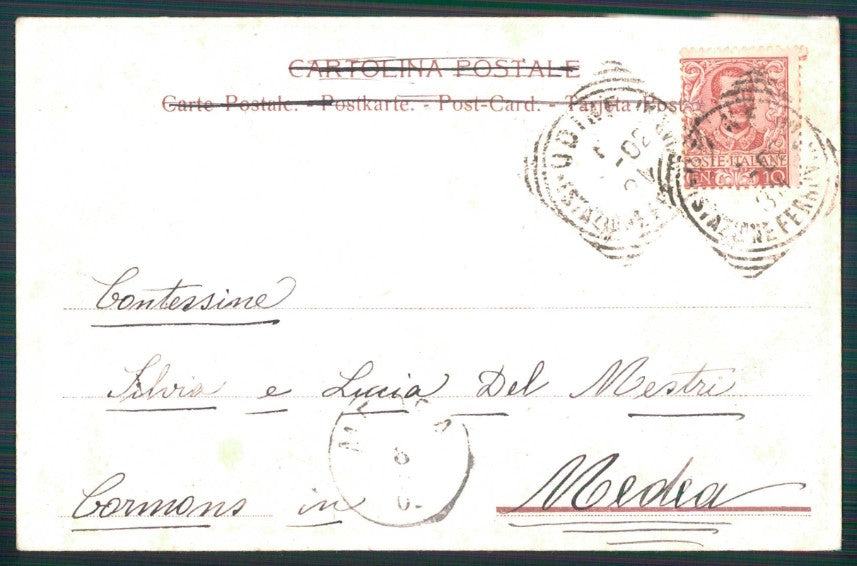 CARTOLINA POSTALE
Carte Postale. - Postkarte. - Post-Card. - Tarjeta Post
POSTE·ITALIANE
CENT 10
UDINE
02
(STAZIONE FERR
Contessine
Silvia e Lucia Del Mestri
Cormons in Medea
8